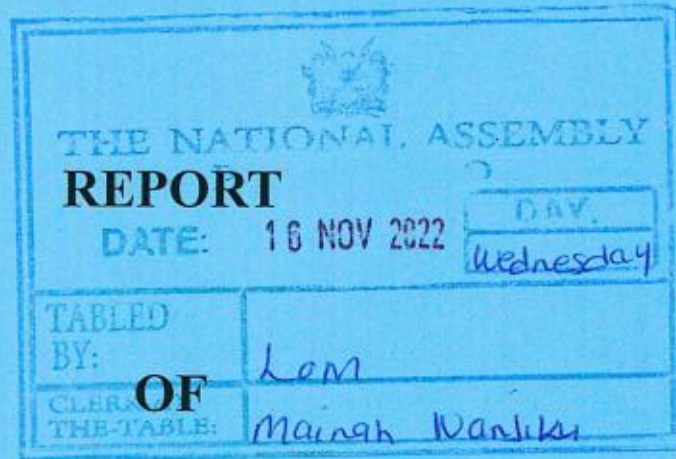 THE NATIONAL ASSEMBLY
REPORT
DATE: 16 NOV 2022
DAY.
Wednesday
TABLED
BY:
LOM
OF
THE-TABLE:
Mainah Wanjiku